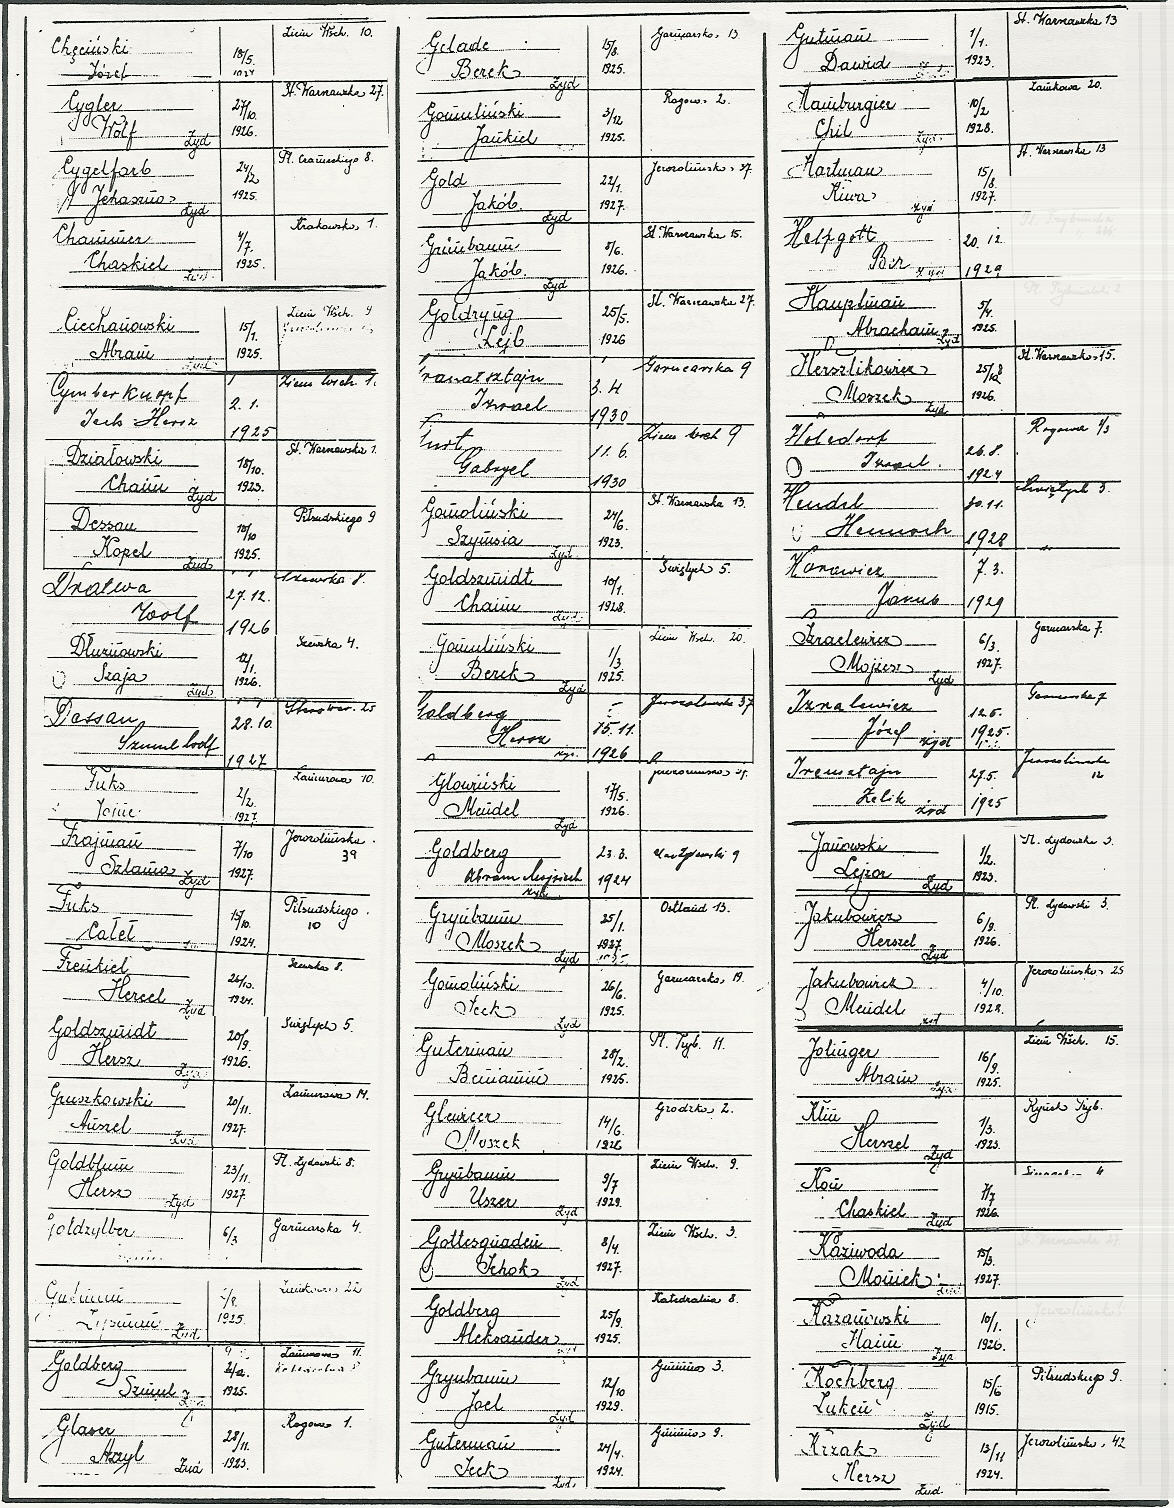 Chęciński
Józef
18/5.
Ziem Wsch. 10.
Cygler
Wolf
Żyd
27/10.
1926.
St. Warnawska 27.
Cygelfarb
Żyd
24/2
1925.
8.
Chammer
Chaskiel
Żyd.
4/7.
1925.
Krakowska 1.
Ciechanowski
Abram
Żyd
15/7.
1925.
Ziem Wsch. 9
Cymberknopf
Icek Hersz
2. 1.
1925
Ziem wsch 1.
Działowski
Chaim
Żyd
18/10.
1923.
St. Warnawska 1.
Dessau
Kopel
Żyd
18/10
1925.
Piłsudskiego 9
Dratwa
Wolf
27.12.
1926
Szewska 8.
Dłużnowski
Szaja
Żyd
12/1.
1926.
Szewska 4.
Dessau
Szmul Wolf
28.10.
1927
25
Fuks
2/2.
1927.
Zamurowa 10.
Frajman
Szlama
Żyd
7/10
1927.
Jerozolimska
39
Fuks
Całel
15/10.
1924.
Piłsudskiego
10
Frenkiel
Hercel
Żyd
1924.
Szewska 8.
Goldszmidt
Hersz
Żyd
20/9.
1926.
Świętych 5.
Gruszkowski
Anszel
Żyd
20/11.
1927.
Zamurowa 14.
Goldblum
Hersz
Żyd
23/11.
1927
Pl. Żydowski 8.
Goldzylber
6/3
Garncarska 4.
Gutman
Lipman
Żyd
1925.
22
Goldberg
Szmul
1925.
Zamurowa 11.
Glaser
Azryl
Żyd
28/11.
1923.
Rogowa 1.
Gelade
Berek
Żyd
15/8.
1925.
Garncarska 13
Gomuliński
Jankiel
3/12
1925.
Rogowa 2.
Gold
Jakób.
Żyd
22/1.
1927.
Jerozolimska 37
Grünbaum
Jakób.
Żyd
8/6.
1926.
St. Warnawska 15.
Goldryng
Lejb
25/5.
1926
St. Warnawska 27.
Granatsztajn
Izrael
3. 4
1930
Garncarska 9
Gabryel
11. 6.
1930
Ziem wsch 9
Gomoliński
Szymsia
Żyd
24/6.
1923.
St. Warnawska 13.
Goldszmidt
Chaim
Żyd.
10/1.
1928.
Świętych 5.
Gomuliński
Berek
Żyd
1/3
1925.
Ziem Wsch. 20.
Goldberg
Hersz
15. 11.
1926
Jerozolimska 37
Głowiński
Mendel
Żyd
17/5.
1926.
Goldberg
Abram Mojżesz
23. 3.
1924
9
Grynbaum
Moszek
Żyd
25/1.
1927.
Ostland 13.
Gomoliński
Icek
Żyd
26/6.
1925.
Garncarska 19.
Guterman
Beniamin
28/2.
1925.
Pl. Tryb. 11.
Glewicer
Moszek
14/6.
1926
Grodzka 2.
Grynbaum
Uszer
Żyd
9/7
1929.
Ziem Wsch. 9.
Gottesgnaden
Ichok
Żyd
8/4.
1927.
Ziem Wsch. 3.
Goldberg
Aleksander
25/9.
1925.
Katedralna 8.
Grynbaum
Joel
Żyd
12/10
1929.
3.
Guterman
Icek
Żyd.
24/4.
1924.
9.
Gutman
Dawid
1/1.
1923.
St. Warnawska 13
Hamburgier
Chil
Żyd
10/2
1928.
Zamkowa 20.
Hartman
Kiwa
Żyd
15/8.
1927.
St. Warnawska 13
Helpgott
Ber
Żyd
20. 12.
1929
Hauptman
Abracham
Żyd
5/4.
1925.
Herszlikowicz
Moszek
Żyd
1926.
St. Warnawska 15.
Holsdorf
Izrael.
26. 8.
1924
Rogowa 1/3
Hendel
Hennoch
30.11.
1928
Świętych 3.
Horowicz
Jakub
7. 3.
1929
Izraelewicz
Mojżesz
Żyd
6/3.
1927.
Garncarska 7.
Izralewicz
Józef
żyd
12 6.
1925.
Garncarska 7
Irensztajn
Zelik
żyd
27.5.
1925
Jerozolimska
12
Janowski
Lejzor
Żyd
1/2.
1923.
Pl. Żydowska 3.
Jakubowicz
Herszel
Żyd
6/9.
1926.
Pl. Żydowski 3.
Jakubowicz
Mendel
żyd
4/10.
1928.
Jerozolimska 25
Jolinger
Abram
Żyd
16/9.
1925.
Ziem Wsch. 15.
Klin
Herszel
Żyd
1/3.
1923.
Rynek Tryb.
Kon
Chaskiel
Żyd
7/7
1926.
4
Kaziwoda
Moniek
Żyd
15/3.
1927.
Kazanowski
Haim
Żyd
10/1.
1926.
Kochberg
Luken
Żyd
15/6
1915.
Piłsudskiego 9.
Krzak
Hersz
Żyd.
13/11
1924.
Jerozolimska 42